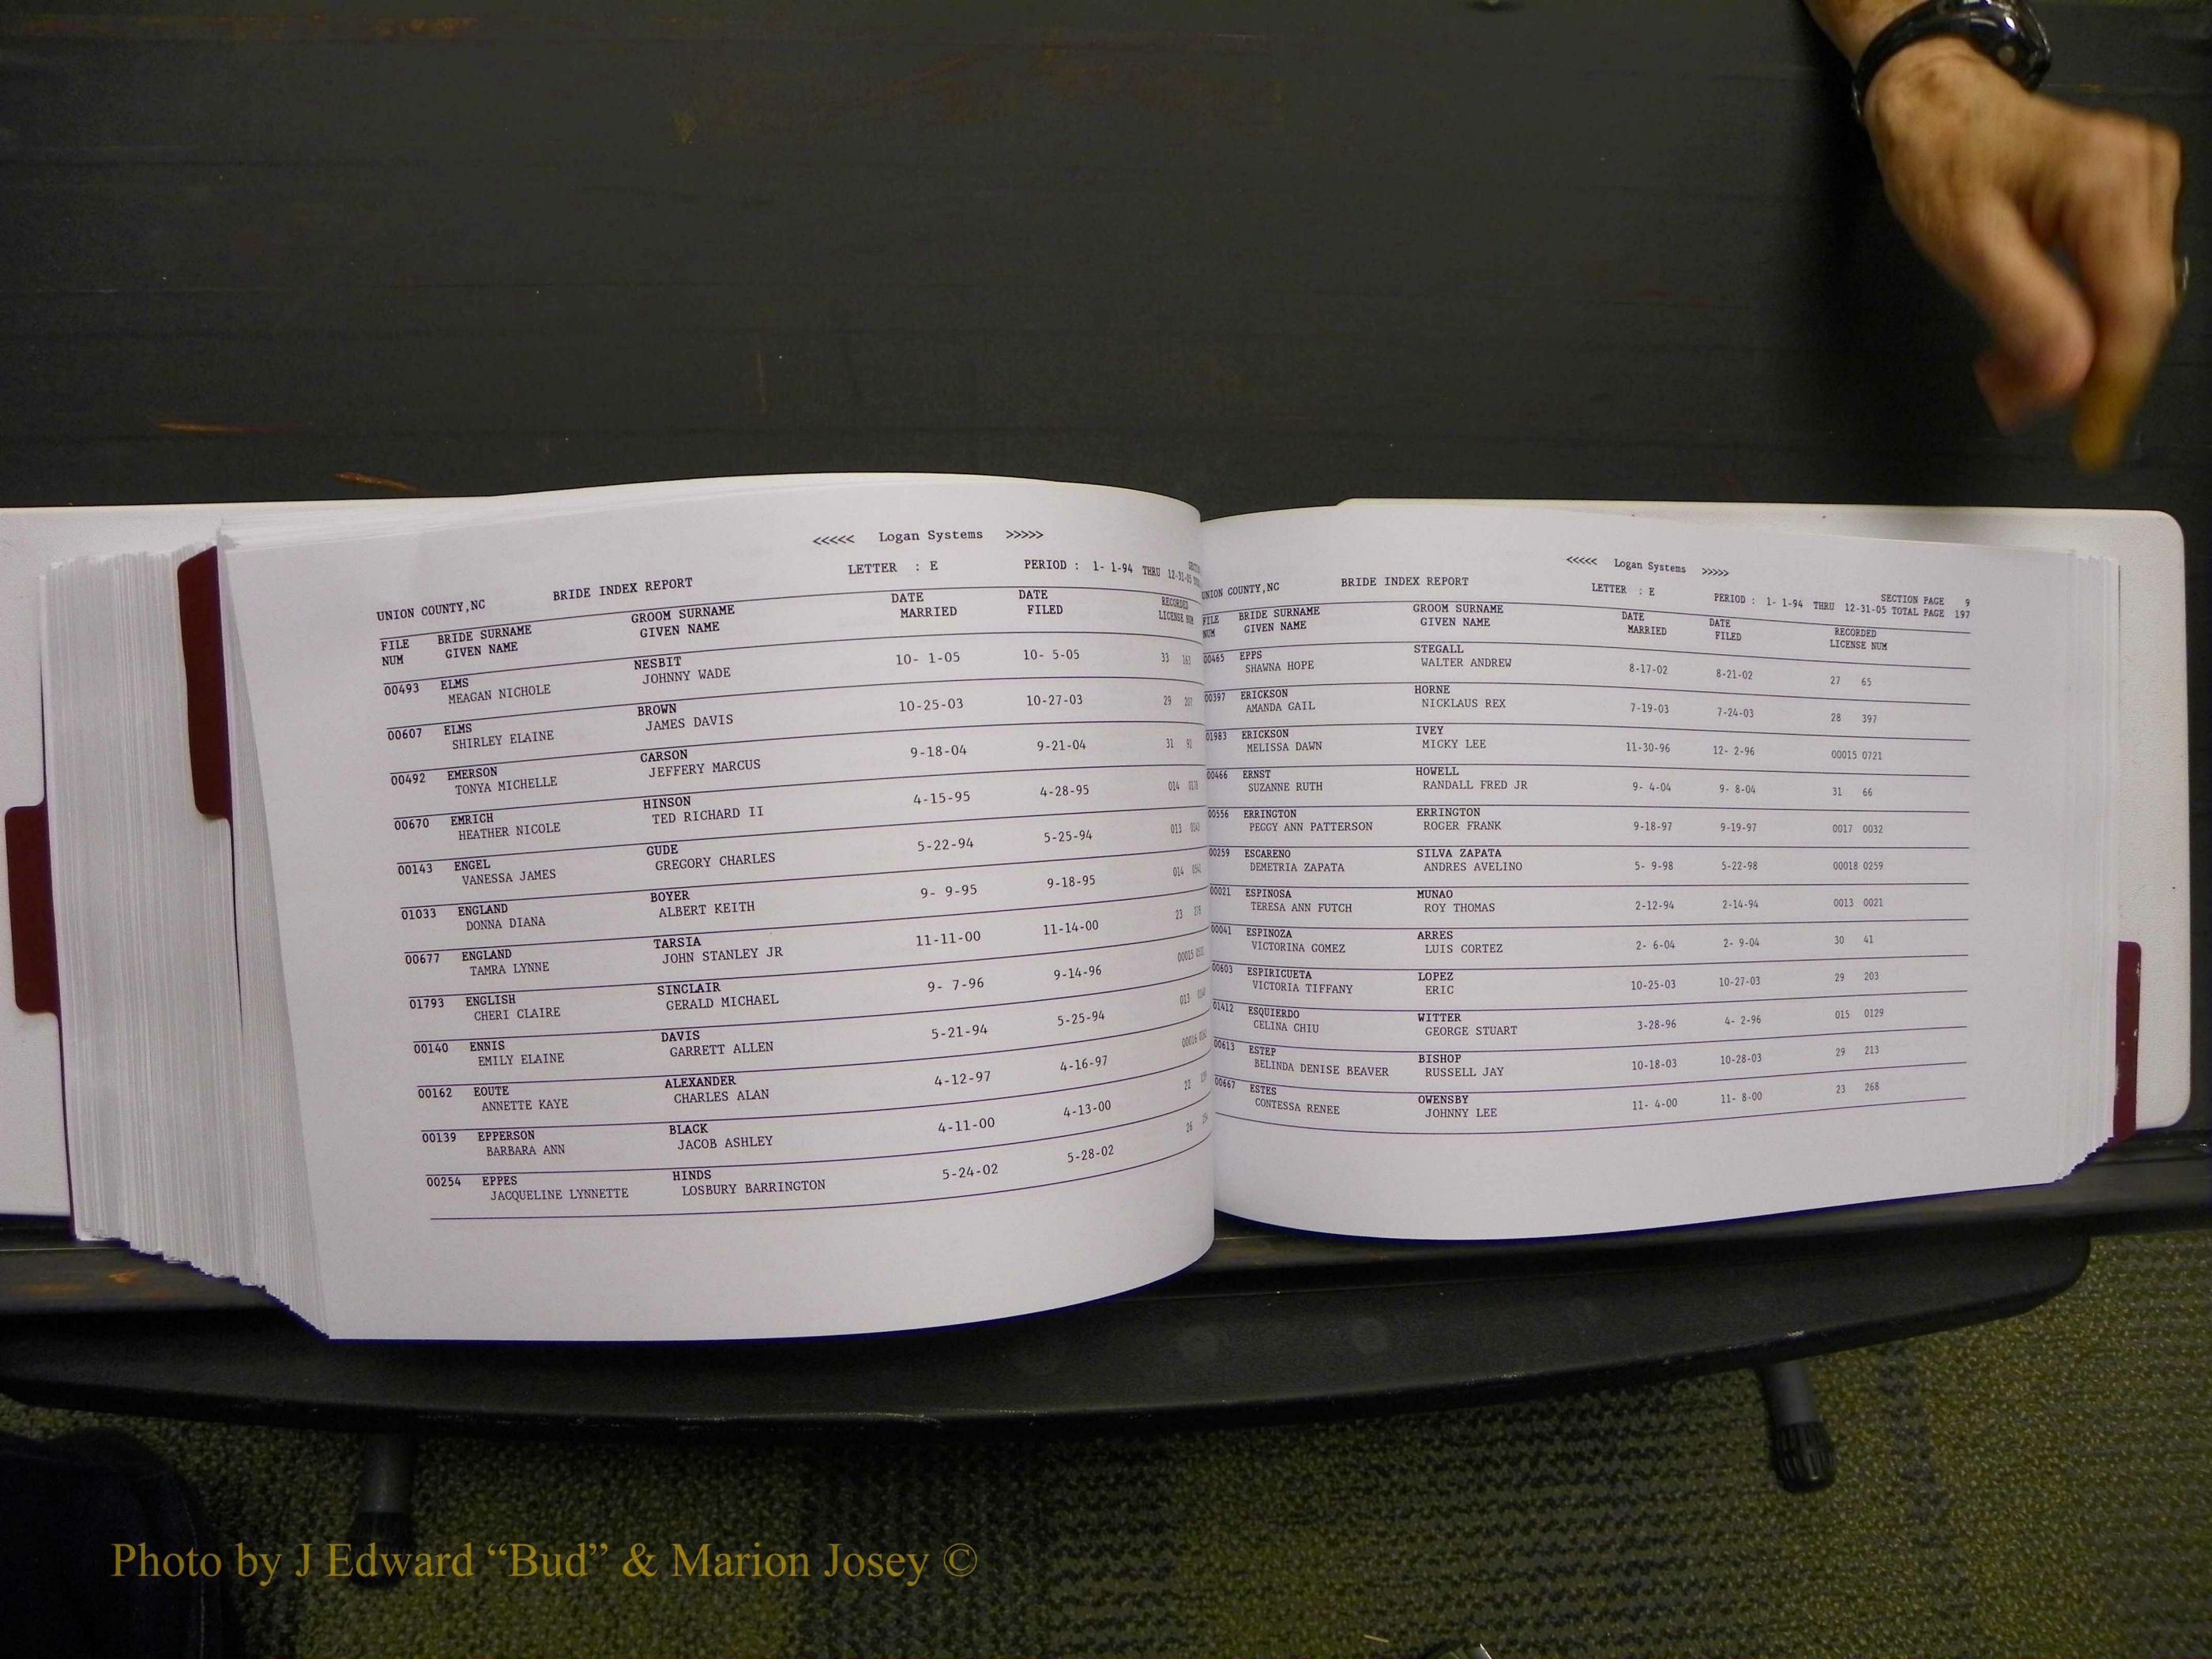 <<<<< Logan Systems >>>>>
UNION COUNTY,NC BRIDE INDEX REPORT LETTER : E PERIOD : 1- 1-94 THRU 12-31-05
FILE BRIDE SURNAME GROOM SURNAME DATE DATE RECORDED
NUM GIVEN NAME GIVEN NAME MARRIED FILED LICENSE NUM
00493 ELMS NESBIT 10- 1-05 10- 5-05 33
MEAGAN NICHOLE JOHNNY WADE
00607 ELMS BROWN 10-25-03 10-27-03 29
SHIRLEY ELAINE JAMES DAVIS
00492 EMERSON CARSON 9-18-04 9-21-04 31
TONYA MICHELLE JEFFERY MARCUS
00670 EMRICH HINSON 4-15-95 4-28-95 014
HEATHER NICOLE TED RICHARD II
00143 ENGEL GUDE 5-22-94 5-25-94 013
VANESSA JAMES GREGORY CHARLES
01033 ENGLAND BOYER 9- 9-95 9-18-95 014
DONNA DIANA ALBERT KEITH
00677 ENGLAND TARSIA 11-11-00 11-14-00 23
TAMRA LYNNE JOHN STANLEY JR
01793 ENGLISH SINCLAIR 9- 7-96 9-14-96 00015
CHERI CLAIRE GERALD MICHAEL
00140 ENNIS DAVIS 5-21-94 5-25-94 013
EMILY ELAINE GARRETT ALLEN
00162 EOUTE ALEXANDER 4-12-97 4-16-97 00016
ANNETTE KAYE CHARLES ALAN
00139 EPPERSON BLACK 4-11-00 4-13-00 22
BARBARA ANN JACOB ASHLEY
00254 EPPES HINDS 5-24-02 5-28-02 26
JACQUELINE LYNNETTE LOSBURY BARRINGTON
<<<<< Logan Systems >>>>>
UNION COUNTY,NC BRIDE INDEX REPORT LETTER : E PERIOD : 1- 1-94 THRU 12-31-05 SECTION PAGE 9
TOTAL PAGE 197
FILE BRIDE SURNAME GROOM SURNAME DATE DATE RECORDED
NUM GIVEN NAME GIVEN NAME MARRIED FILED LICENSE NUM
00465 EPPS STEGALL 8-17-02 8-21-02 27 65
SHAWNA HOPE WALTER ANDREW
00397 ERICKSON HORNE 7-19-03 7-24-03 28 397
AMANDA GAIL NICKLAUS REX
01983 ERICKSON IVEY 11-30-96 12- 2-96 00015 0721
MELISSA DAWN MICKY LEE
00466 ERNST HOWELL 9- 4-04 9- 8-04 31 66
SUZANNE RUTH RANDALL FRED JR
00556 ERRINGTON ERRINGTON 9-18-97 9-19-97 0017 0032
PEGGY ANN PATTERSON ROGER FRANK
00259 ESCARENO SILVA ZAPATA 5- 9-98 5-22-98 00018 0259
DEMETRIA ZAPATA ANDRES AVELINO
00021 ESPINOSA MUNAO 2-12-94 2-14-94 0013 0021
TERESA ANN FUTCH ROY THOMAS
00041 ESPINOZA ARRES 2- 6-04 2- 9-04 30 41
VICTORINA GOMEZ LUIS CORTEZ
00603 ESPIRICUETA LOPEZ 10-25-03 10-27-03 29 203
VICTORIA TIFFANY ERIC
01412 ESQUIERDO WITTER 3-28-96 4- 2-96 015 0129
CELINA CHIU GEORGE STUART
00613 ESTEP BISHOP 10-18-03 10-28-03 29 213
BELINDA DENISE BEAVER RUSSELL JAY
00667 ESTES OWENSBY 11- 4-00 11- 8-00 23 268
CONTESSA RENEE JOHNNY LEE
Photo by J Edward “Bud” & Marion Josey ©